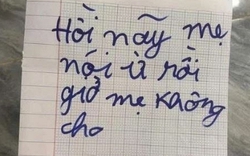 Hồi nãy mẹ
nói ừ rồi
giờ mẹ không
cho